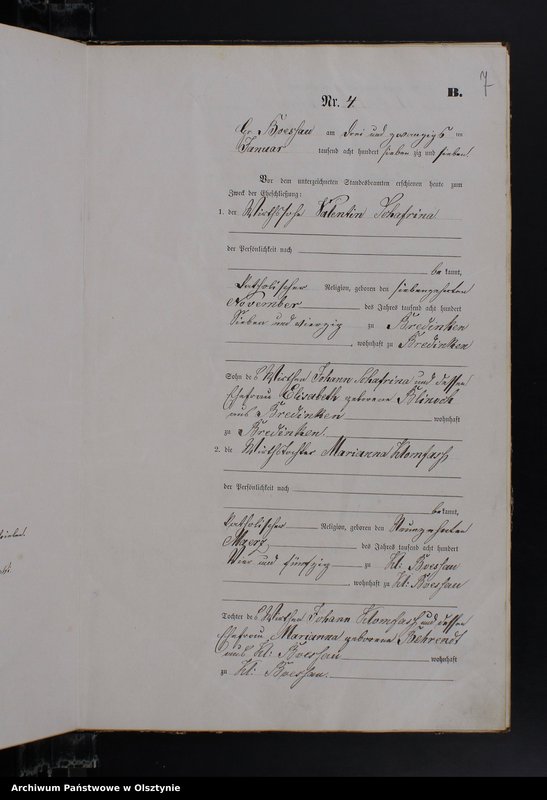 7
B.
Nr. 4
Gr. Boessau am drei und zwanzigs ten
Januar tausend acht hundert sieben zig und sieben.
Vor dem unterzeichneten Standesbeamten erschienen heute zum
Zweck der Eheschließung:
1. der Wirthssohn Valentin Schafrina
der Persönlichkeit nach
be kannt,
katholischer Religion, geboren den siebenzehnten
November des Jahres tausend acht hundert
Sieben und vierzig zu Bredinken
, wohnhaft zu Bredinken
Sohn des Wirthen Johann Schafrina und dessen
Ehefrau Elisabeth geborene
aus Bredinken wohnhaft
zu Bredinken.
2. die Wirthstochter Marianna
der Persönlichkeit nach
be kannt,
katholischer Religion, geboren den Neunzehnten
Maerz des Jahres tausend acht hundert
Vier und fünfzig zu Kl: Boessau
, wohnhaft zu Kl: Boessau
Tochter des Wirthen Johann und dessen
Ehefrau Marianna geborene Behrendt
aus Kl: Boessau wohnhaft
zu Kl: Boessau.
Archiwum Państwowe w Olsztynie